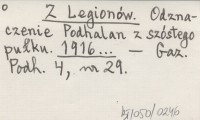 Z Legionów. Odzna-
czenie Podhalan z szóstego
pułku. 1916... — Gaz.
Podh. 4, nr 29.
bj/050/0246